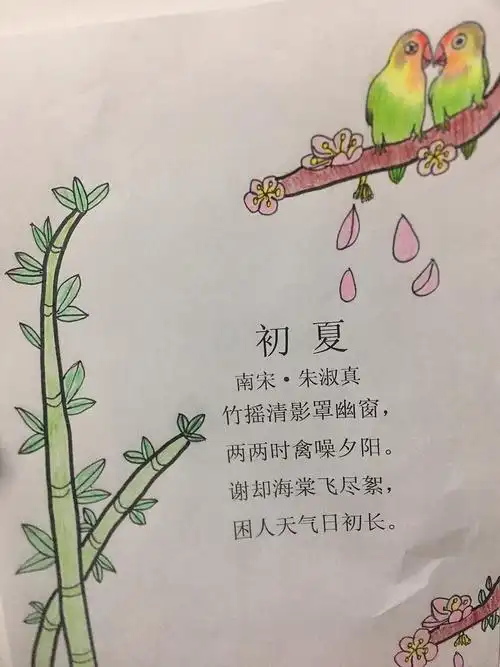 初 夏
南宋·朱淑真
竹摇清影罩幽窗，
两两时禽噪夕阳。
谢却海棠飞尽絮，
困人天气日初长。